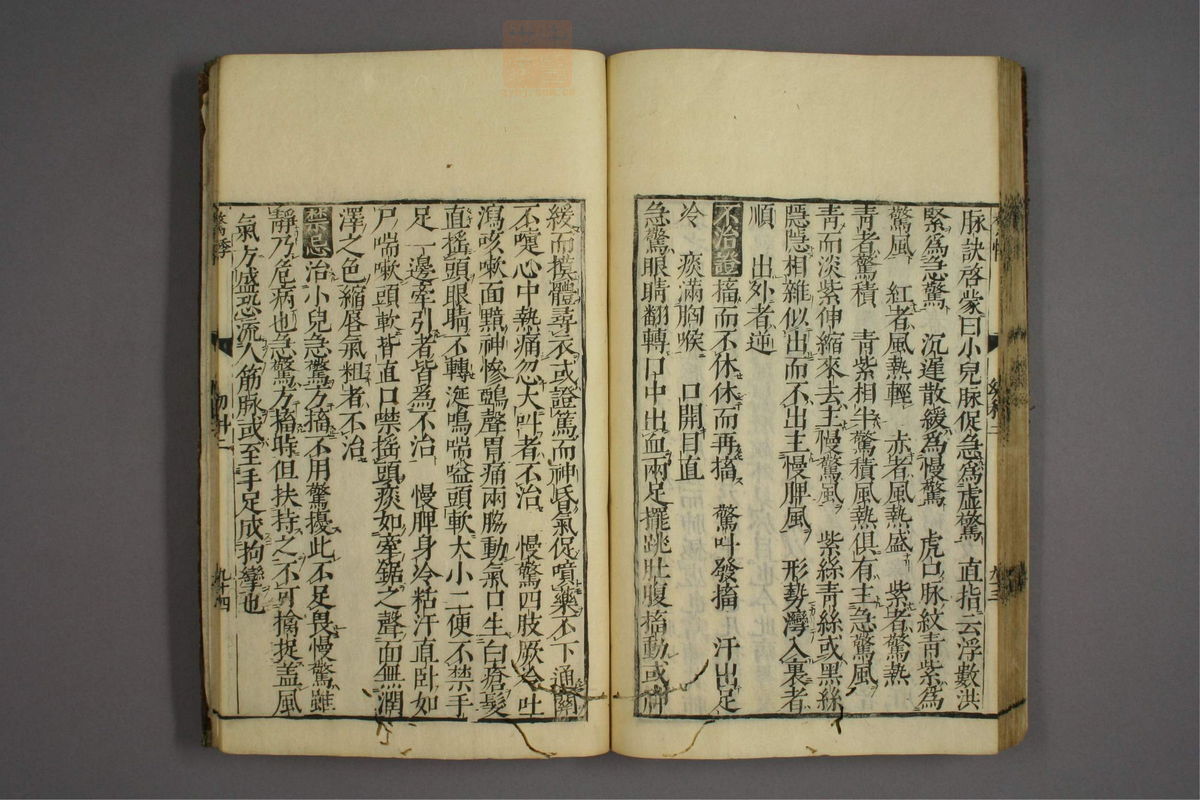 脉訣啓蒙曰小兒脉促急為虛驚　直指云浮數洪
緊為急驚　沉遲散緩為慢驚　虎口脉紋青紫為
驚風　紅者風熱輕　赤者風熱盛　紫者驚熱
青者驚積　青紫相半驚積風熱俱有主急驚風
青而淡紫伸縮來去主慢驚風　紫絲青絲或黑絲
隱隱相雜似出而不出主慢脾風　形勢灣入裏者
順　出外者逆
不治證搐而不休休而再搐　驚叫發搐　汗出足
冷　痰滿胸喉　口開目直
急驚眼睛翻轉口中出血兩足擺跳肚腹搐動或神
緩而摸體尋衣或證篤而神昏氣促噴藥不下通關
不嚏心中熱痛忽大叫者不治　慢驚四肢厥冷吐
瀉咳嗽面黯神慘鴉聲胃痛兩脇動氣口生白瘡髮
直搖頭眼睛不轉涎鳴喘嗌頭軟大小二便不禁手
足一邊牽引者皆為不治　慢脾身冷粘汗直卧如
尸喘嗽頭軟背直口噤搖頭痰如牽鋸之聲而無潤
澤之色縮唇氣粗者不治
禁忌治小兒急驚方搐不用驚擾此不足畏慢驚雖
靜乃危病也急驚方搐時但扶持之不可擒捉盖風
氣方盛恐流入筋脉或至手足成拘攣也
九十四